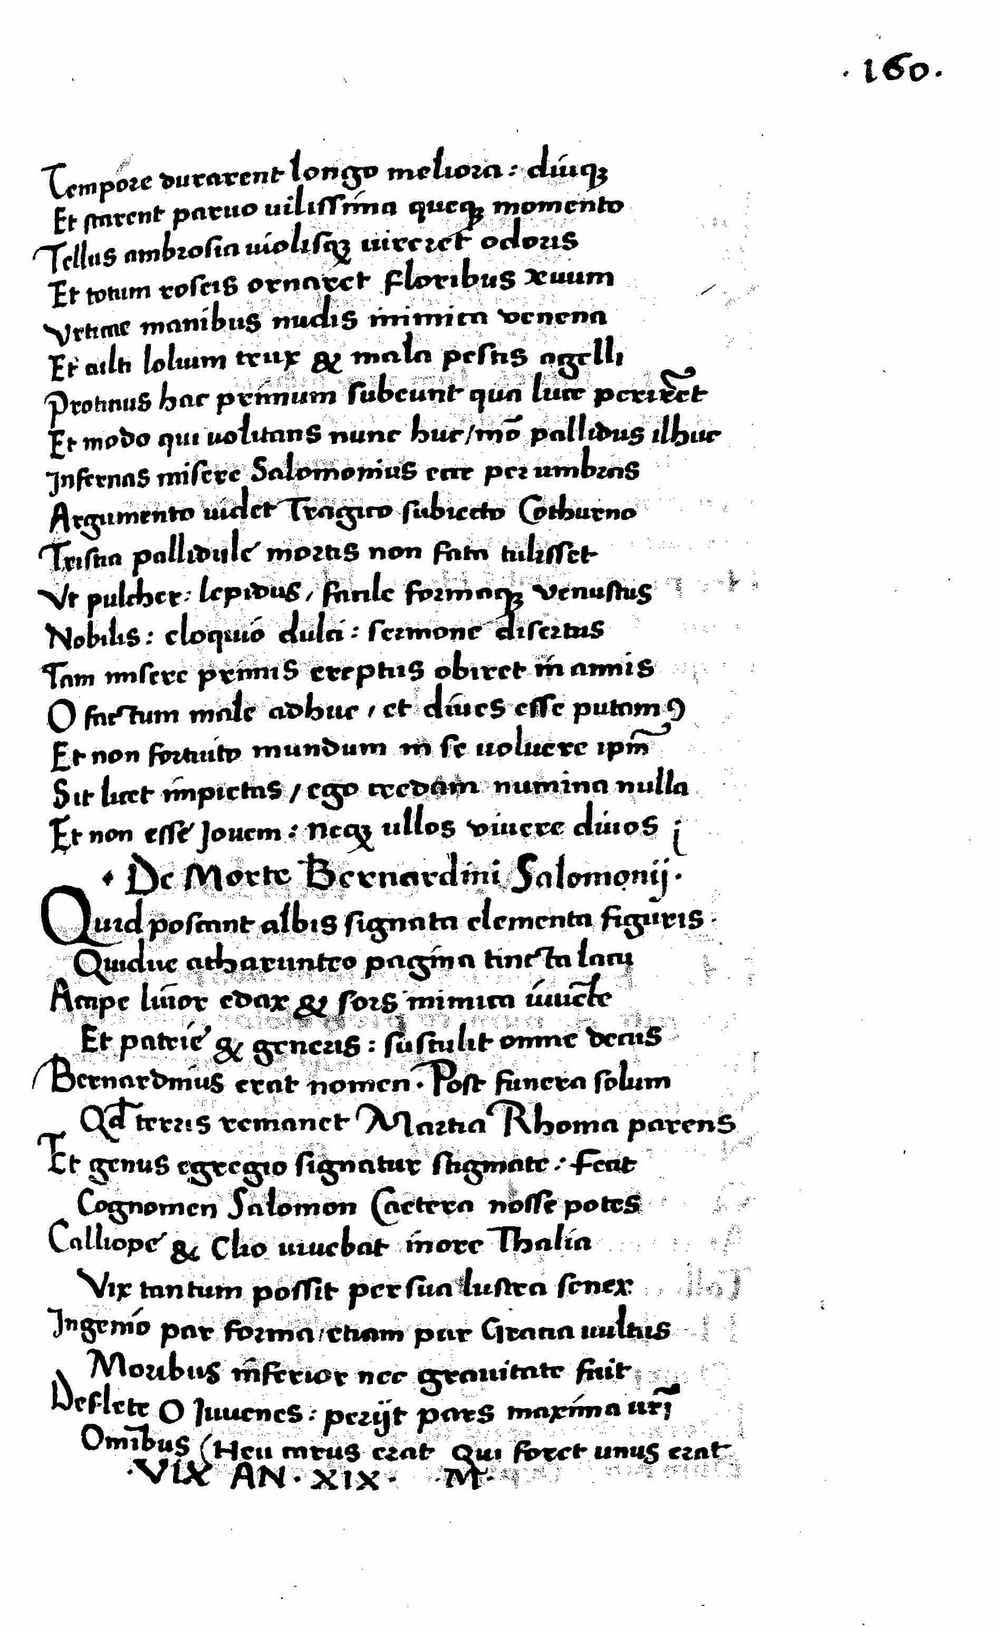 · 160 ·
Tempore durarent longo meliora : diuꝗ
Et starent paruo uilissima queꝗ momento
Tellus ambrosia uiolisꝗ uireret odoris
Et totum roseis ornaret floribus æuum
Vrticae manibus nudis inimica venena
Et culti lolium trux & mala pestis agelli
Protinus hac primum subeunt qua luce perirēt
Et modo qui uolitans nunc huc / mō pallidus illhuc
Infernas misere Salomonius eat per umbras
Argumento uidet Tragico subiecto Cothurno
Tristia pallidulę mortis non fata tulisset
Vt pulcher : lepidus, facile formaꝗ venustus
Nobilis : eloquio dulci : sermone disertus
Tam misere primis ereptus obiret in annis
O factum male adhuc, et diues esse putamꝰ
Et non fortuito mundum in se uoluere ipm̄
Sit licet impietas / ego credam numina nulla
Et non esse Iouem : neꝗ ullos viuere diuos
· De Morte Bernardini Salomonij ·
Quid poscant albis signata elementa figuris ·
Quidue atharunteo pagina tincta lacu
Accipe liuor edax & sors inimica iuuēte
Et patrię & generis : sustulit omne decus
Bernardinus erat nomen · Post funera solum
Qđ terris remanet Martia Rhoma parens
Et genus egregio signatur stigmate : Fecit
Cognomen Salomon Caetera nosse potes
Calliope & Clio uiuebat in ore Thalia
Vix tantum possit per sua lustra senex
Ingenio par forma / etiam par Gratia uultus
Moribus inferior nec grauitate fuit
Deflete O Iuuenes : perijt pars maxima urī
Omībus (Heu carus erat Qui foret unus erat
· VIX AN · XIX · M ·